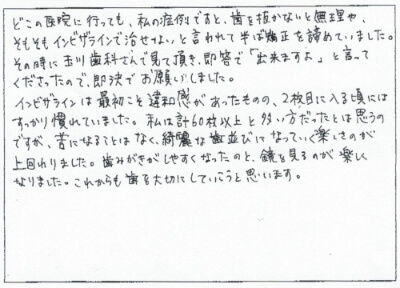 どこの医院に行っても、私の症例ですと、歯を抜かないと無理や、
そもそもインビザラインで治せない、と言われて半ば矯正を諦めていました。
その時に玉川歯科さんで見て頂き、即答で「出来ますよ」と言って
くださったので、即決でお願いしました。
インビザラインは最初こそ違和感があったものの、2枚目に入る頃には
すっかり慣れていました。私は計60枚以上と多い方だったとは思うの
ですが、苦になることはなく、綺麗な歯並びになっていく楽しさのが
上回りました。歯みがきがしやすくなったのと、鏡を見るのが楽しく
なりました。これからも歯を大切にしていこうと思います。